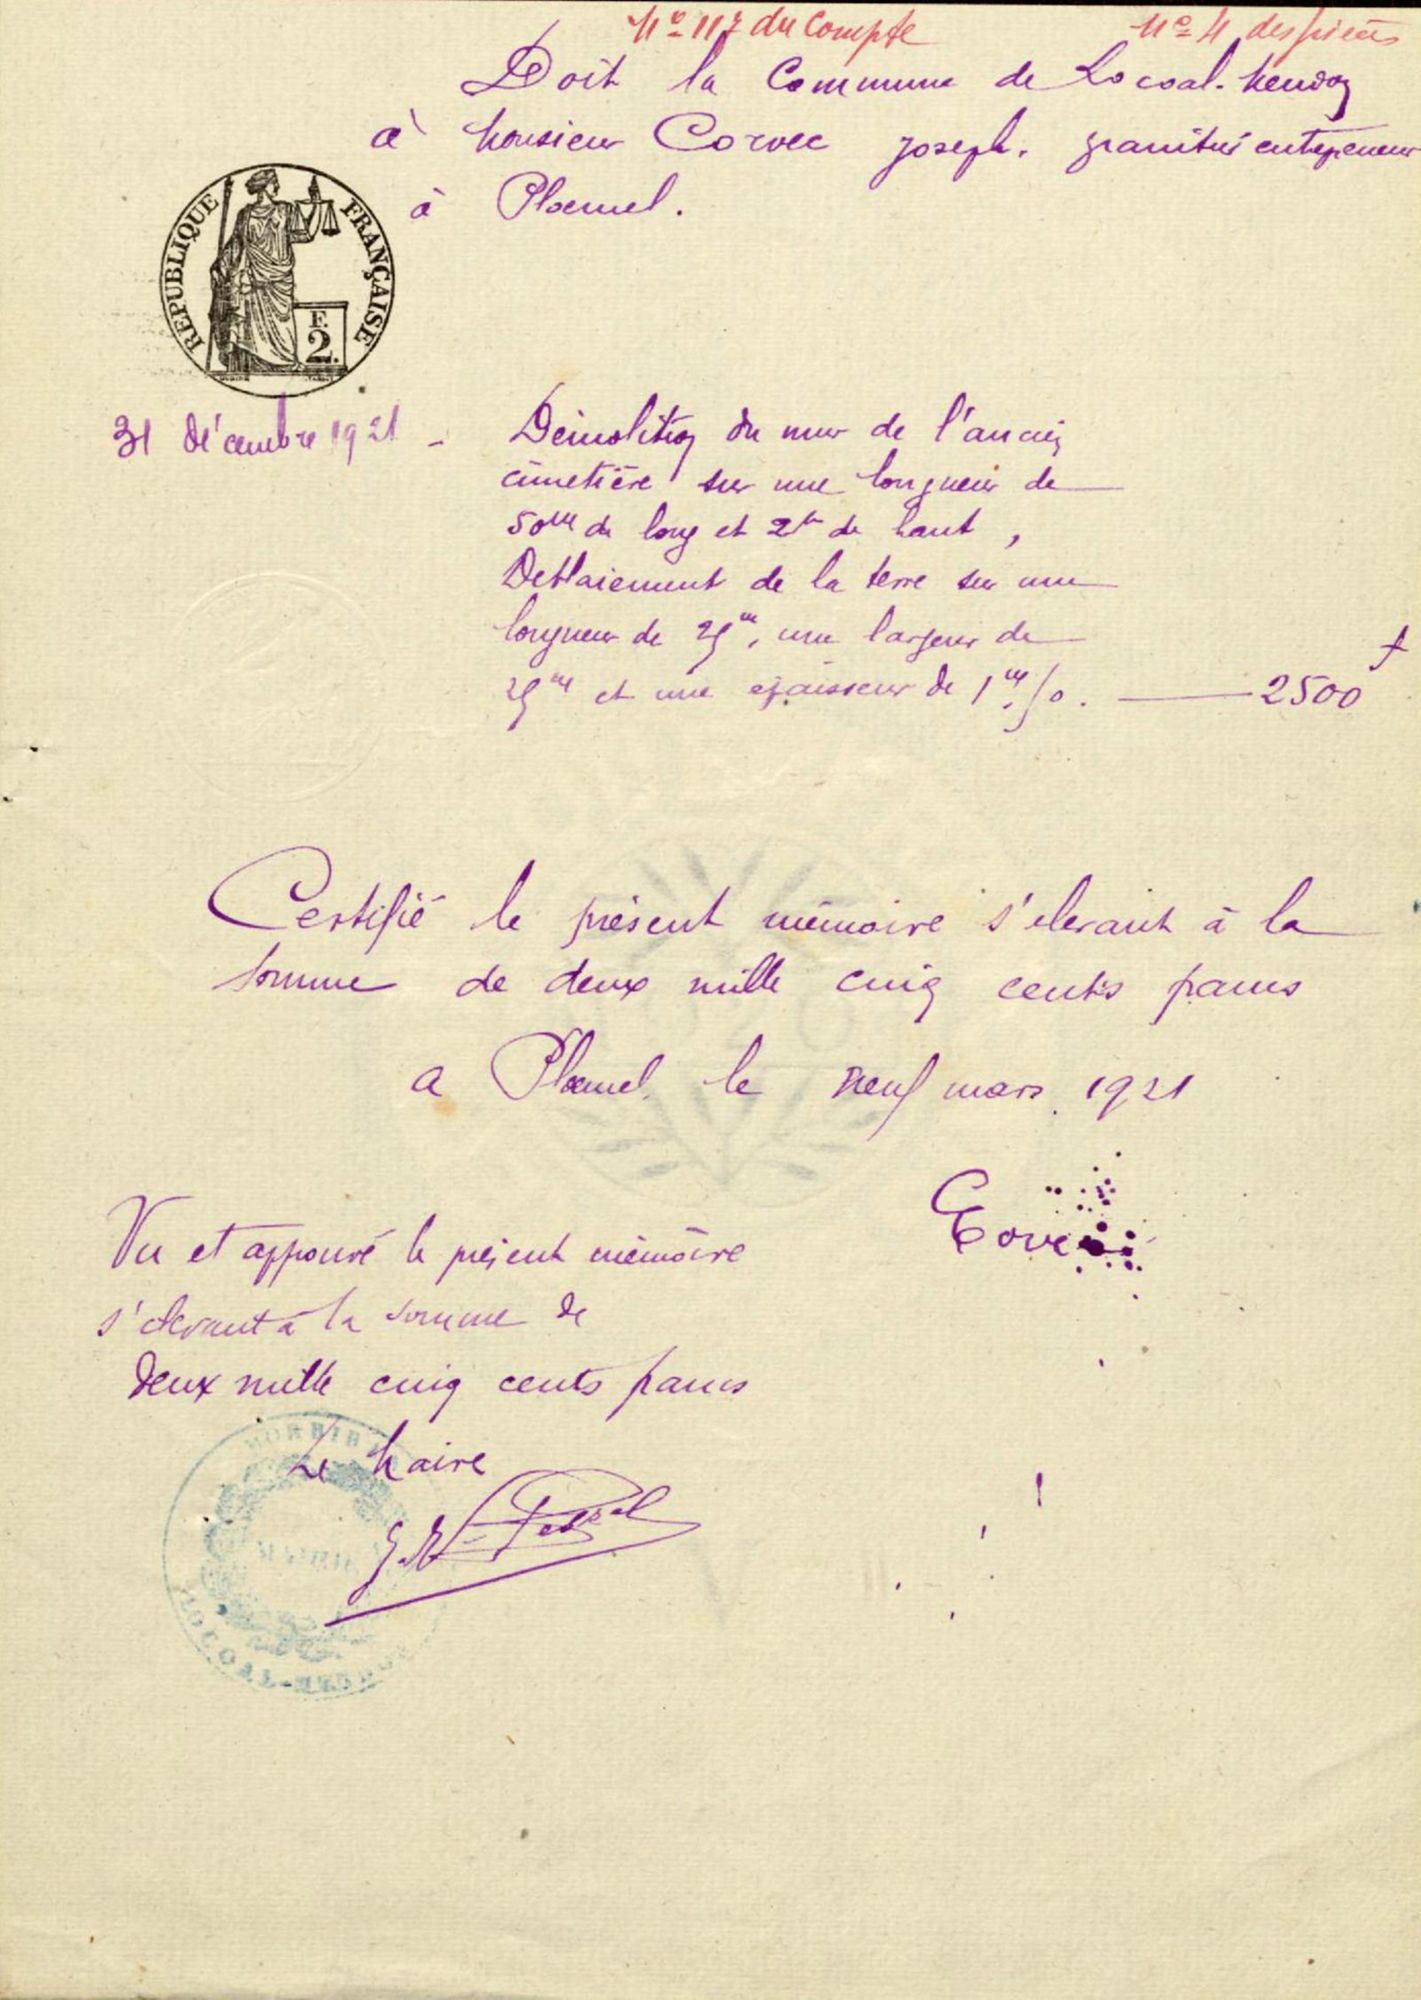 Nº 117 du Compte Nº 4 des pièces
Doit la Commune de Locoal-Mendon
à Monsieur Corvec Joseph. granitier entrepreneur
à Ploemel.
RÉPUBLIQUE FRANÇAISE
F.
2.
31 Décembre 1921 - Démolition du mur de l'ancien
cimetière sur une longueur de
50m de long et 2m de haut,
Deblaiement de la terre sur une
longueur de 25m, une largeur de
25m et une epaisseur de 1m,50. 2500f
Certifié le présent mémoire s'elevant à la
somme de deux mille cinq cents francs
a Ploemel le neuf mars 1921
Vu et approuvé le présent mémoire
s'elevant à la somme de
deux mille cinq cents francs
Le Maire
MORBIHAN
MAIRIE
LOCOAL-MENDON